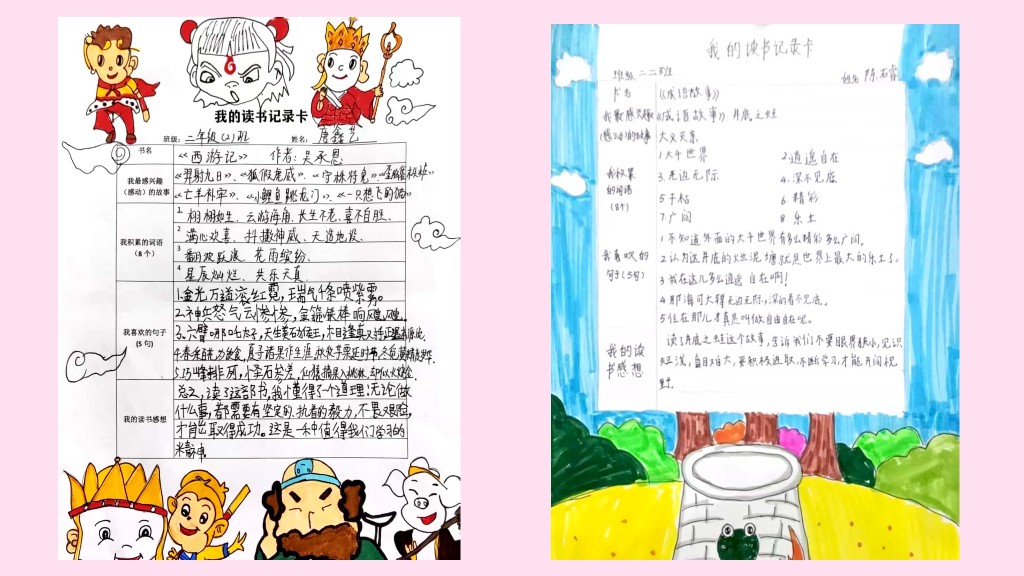 我的读书记录卡
班级: 二年级(2)班 姓名: 唐鑫艺
书名
《西游记》 作者: 吴承恩
我最感兴趣
(感动)的故事
《羿射九日》、《狐假虎威》、《守株待兔》、
《亡羊补牢》、《小鲤鱼跳龙门》、《一只想飞的猫》
我积累的词语
(8个)
1 栩栩如生、云游海角、长生不老、喜不自胜、
2 满心欢喜、抖擞神威、天造地设、
3 翻波跃浪、花雨缤纷、
4 星辰灿烂、共乐天真
我喜欢的句子
(5句)
1.金光万道滚红霓,瑞气千条喷紫雾。
2.神 怒气云惨惨,金箍铁棒响飕飕。
3.六臂哪吒太子,天生美石猴王,
4.春采百花为饮食,夏寻诸果作生涯
5.巧峰排列,怪石参差
我的读书感想
总之,读了这部书,我懂得了一个道理:无论做
什么事,都需要有坚定的、执着的毅力,不畏艰险,
才肯 取得成功。这是一种值得我们学习的
精神
我的读书记录卡
班级 二二班
姓名 陈石睿
书名
《成语故事》
我最感兴趣
感动的故事
《成语故事》 井底之蛙
大义灭亲
我积累
的词语
(8个)
1 大千世界 2 逍遥自在
3.无边无际 4.深不见底
5 子粘 6 精彩
7.广阔 8 乐土
我喜欢的
句子(5句)
1 不知道外面的大千世界有多么精彩多么广阔。
2 认为这井底的烂泥塘就是世界上最大的乐土了。
3 我在这儿多么逍遥自在啊!
4 那海可大得无边无际,深的看不见底。
5 住在那儿才真是叫做自由自在呢。
我的读
书感想
读了井底之蛙这个故事,告诉我们不要眼界狭小,见识
短浅,盲目自大,要积极进取,不断学习,才能开阔视
野。